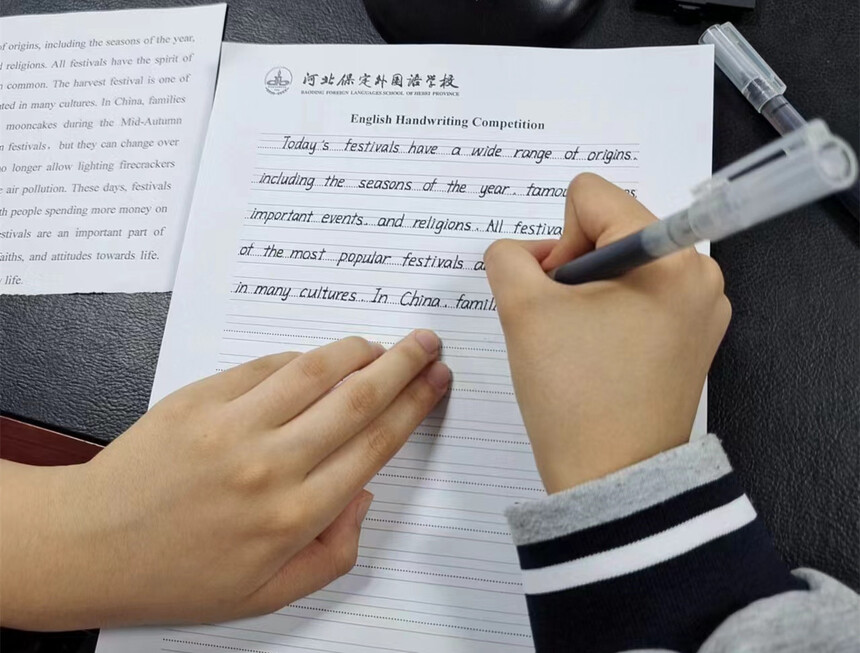 of origins, including the seasons of the year,
religions. All festivals have the spirit of
common. The harvest festival is one of
in many cultures. In China, families
mooncakes during the Mid-Autumn
festivals, but they can change over
longer allow lighting firecrackers
air pollution. These days, festivals
people spending more money on
are an important part of
and attitudes towards life.
life.
河北保定外国语学校
BAODING FOREIGN LANGUAGES SCHOOL OF HEBEI PROVINCE
English Handwriting Competition
Today's festivals have a wide range of origins.
including the seasons of the year. famou
important events. and religions. All festiva
of the most popular festivals a
in many cultures. In China. famili